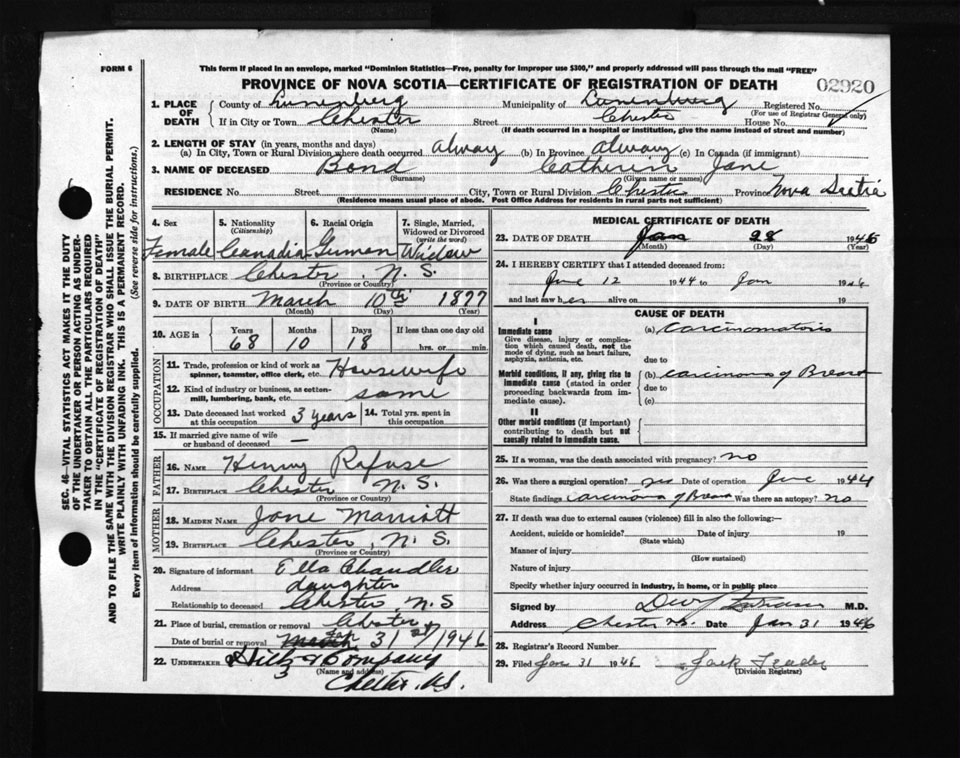 FORM 6
This form if placed in an envelope, marked "Dominion Statistics—Free, penalty for improper use $300," and properly addressed will pass through the mail "FREE"
PROVINCE OF NOVA SCOTIA—CERTIFICATE OF REGISTRATION OF DEATH
02920
1. PLACE OF DEATH County of Lunenburg Municipality of Lunenburg Registered No.
(For use of Registrar General only)
If in City or Town Chester Street Chester House No.
(Name) (If death occurred in a hospital or institution, give the name instead of street and number)
2. LENGTH OF STAY (in years, months and days)
(a) In City, Town or Rural Division where death occurred alway (b) In Province alway (c) In Canada (if immigrant)
3. NAME OF DECEASED Bond Catherin Jane
(Surname) (Given name or names)
RESIDENCE No. Street City, Town or Rural Division Chester Province Nova Scotia
(Residence means usual place of abode. Post Office Address for residents in rural parts not sufficient)
4. Sex 5. Nationality (Citizenship) 6. Racial Origin 7. Single, Married, Widowed or Divorced (write the word)
Female Canadia German Widow
8. BIRTHPLACE Chester, N. S.
(Province or Country)
9. DATE OF BIRTH March 10th 1877
(Month) (Day) (Year)
10. AGE in Years Months Days If less than one day old
68 10 18 hrs. or min.
OCCUPATION
11. Trade, profession or kind of work as spinner, teamster, office clerk, etc. Housewife
12. Kind of industry or business, as cotton-mill, lumbering, bank, etc. same
13. Date deceased last worked at this occupation 3 years 14. Total yrs. spent in this occupation
15. If married give name of wife or husband of deceased —
FATHER
16. NAME Henry Rafuse
17. BIRTHPLACE Chester N. S.
(Province or Country)
MOTHER
18. MAIDEN NAME Jane Marriott
19. BIRTHPLACE Chester, N. S.
(Province or Country)
20. Signature of informant Ella Chandler
Address daughter
Relationship to deceased Chester, N.S
21. Place of burial, cremation or removal Chester
Date of burial or removal March Jan 31st 1946
22. UNDERTAKER Hiltz & Company
(Name and address)
Chester. N.S.
MEDICAL CERTIFICATE OF DEATH
23. DATE OF DEATH Jan 28 1946
(Month) (Day) (Year)
24. I HEREBY CERTIFY that I attended deceased from:
June 12 1944 to Jan 1946
and last saw her alive on 19
CAUSE OF DEATH
I
Immediate cause (a) Carcinomatosis
Give disease, injury or complication which caused death, not the mode of dying, such as heart failure, asphyxia, asthenia, etc.
due to
Morbid conditions, if any, giving rise to immediate cause (stated in order proceeding backwards from immediate cause).
(b) Carcinoma of Breast
due to
(c)
II
Other morbid conditions (if important) contributing to death but not causally related to immediate cause.
25. If a woman, was the death associated with pregnancy? no
26. Was there a surgical operation? June 1944
State findings Carcinoma of Breast Was there an autopsy? no
27. If death was due to external causes (violence) fill in also the following:—
Accident, suicide or homicide? Date of injury 19
(State which)
Manner of injury
(How sustained)
Nature of injury
Specify whether injury occurred in industry, in home, or in public place
Signed by M.D.
Address Chester N.S. Date Jan 31 1946
28. Registrar's Record Number
29. Filed Jan 31 1946 Jack
(Division Registrar)
SEC. 46—VITAL STATISTICS ACT MAKES IT THE DUTY
OF THE UNDERTAKER OR PERSON ACTING AS UNDER-
TAKER TO OBTAIN ALL THE PARTICULARS REQUIRED
IN THE "CERTIFICATE OF REGISTRATION OF DEATH"
AND TO FILE THE SAME WITH THE DIVISION REGISTRAR WHO SHALL ISSUE THE BURIAL PERMIT.
WRITE PLAINLY WITH UNFADING INK. THIS IS A PERMANENT RECORD.
Every item of information should be carefully supplied. (See reverse side for instructions.)